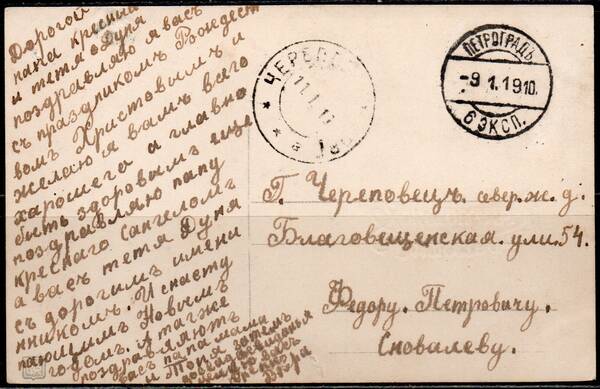 Дорогой
папа крёсный
и тетя Дуня
поздравляю я васъ
съ праздникомъ Рождест
вомъ Христовымъ и
желаю я вамъ всего
харошего а главно
быть здоровымъ еще
поздравляю папу
креснаго Сангеломъ
а васъ тетя Дуня
съ дорогимъ имени
нникомъ. И снасту
пающимъ Новымъ
годомъ. А также
поздравляютъ
васъ папа мама
и Тоня затемъ
досвиданья
целую васъ
ЧЕРЕПОВ
11.1.1
* а *
ПЕТРОГРАДЪ
-9 1.1910.
6 ЭКСП.
Г. Череповецъ север.ж.д.
Благовещенская. ули.54.
Федору. Петровичу.
Сновалеву.